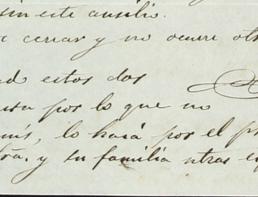 sin este ausilio.
cerrar y no ocurre otr
ad estos dos
usa por lo que no
más, lo hará por el p
bra, y su familia otras